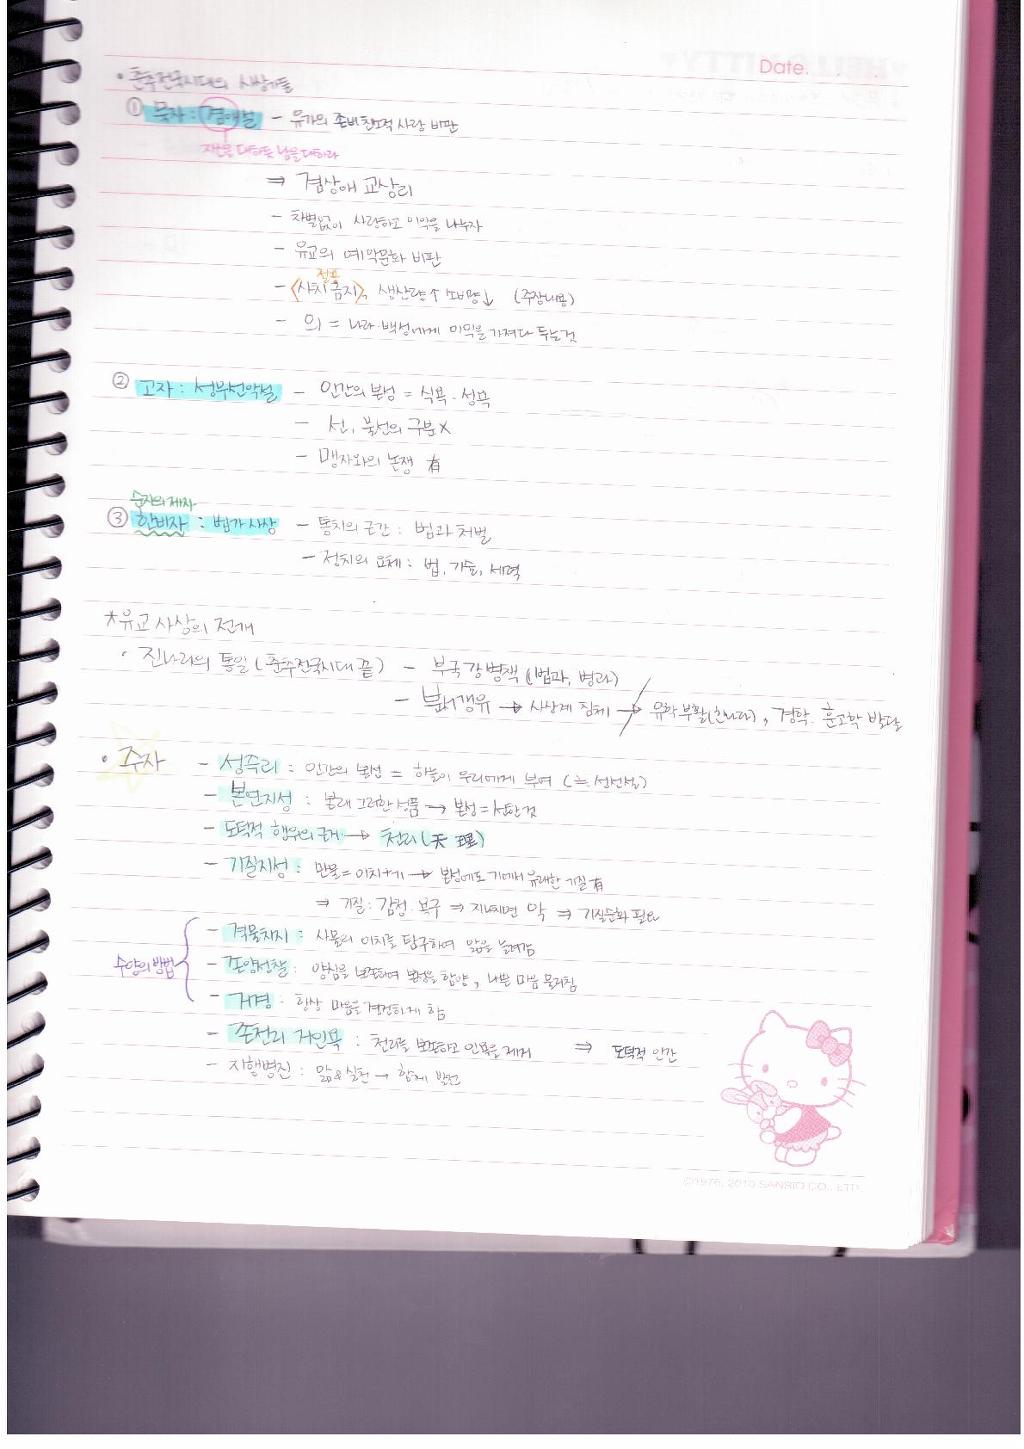 Date. . .
• 춘추전국시대의 사상가들
① 묵자 : 겸애설 - 유가의 존비친소적 사랑 비판
자신을 대하듯 남을 대하라
⇒ 겸상애 교상리
- 차별없이 사랑하고 이익을 나누자
- 유교의 예악문화 비판
절용
- <사치 금지>, 생산량↑ 소비량↓ (주장내용)
- 의 = 나라·백성에게 이익을 가져다 주는것
② 고자 : 성무선악설 - 인간의 본성 = 식욕·성욕
- 선, 불선의 구분 X
- 맹자와의 논쟁 有
순자의 제자
③ 한비자 : 법가사상 - 통치의 근간 : 법과 처벌
- 정치의 요체 : 법, 기술, 세력
*유교 사상의 전개
• 진나라의 통일 (춘추전국시대 끝) - 부국강병책 (법가, 병가)
- 분서갱유 → 사상계 침체 → 유학부활(한나라), 경학·훈고학 발달
• 주자 - 성즉리 : 인간의 본성 = 하늘이 우리에게 부여 (≒ 성선설)
- 본연지성 : 본래 그러한 성품 → 본성 = 선한것
- 도덕적 행위의 근거 → 천리(天理)
- 기질지성 : 만물 = 이치+기 → 본성에도 기에서 유래한 기질 有
⇒ 기질 : 감정·욕구 ⇒ 지나치면 악 ⇒ 기질변화 필요
수양의 방법
- 격물치지 : 사물의 이치를 탐구하여 앎을 늘려감
- 존양성찰 : 양심을 보존하여 본성을 함양, 나쁜 마음 물리침
- 거경 : 항상 마음을 경건하게 함
- 존천리 거인욕 : 천리를 보존하고 인욕을 제거 ⇒ 도덕적 인간
- 지행병진 : 앎&실천 → 함께 발전
©1976, 2010 SANRIO CO., LTD.